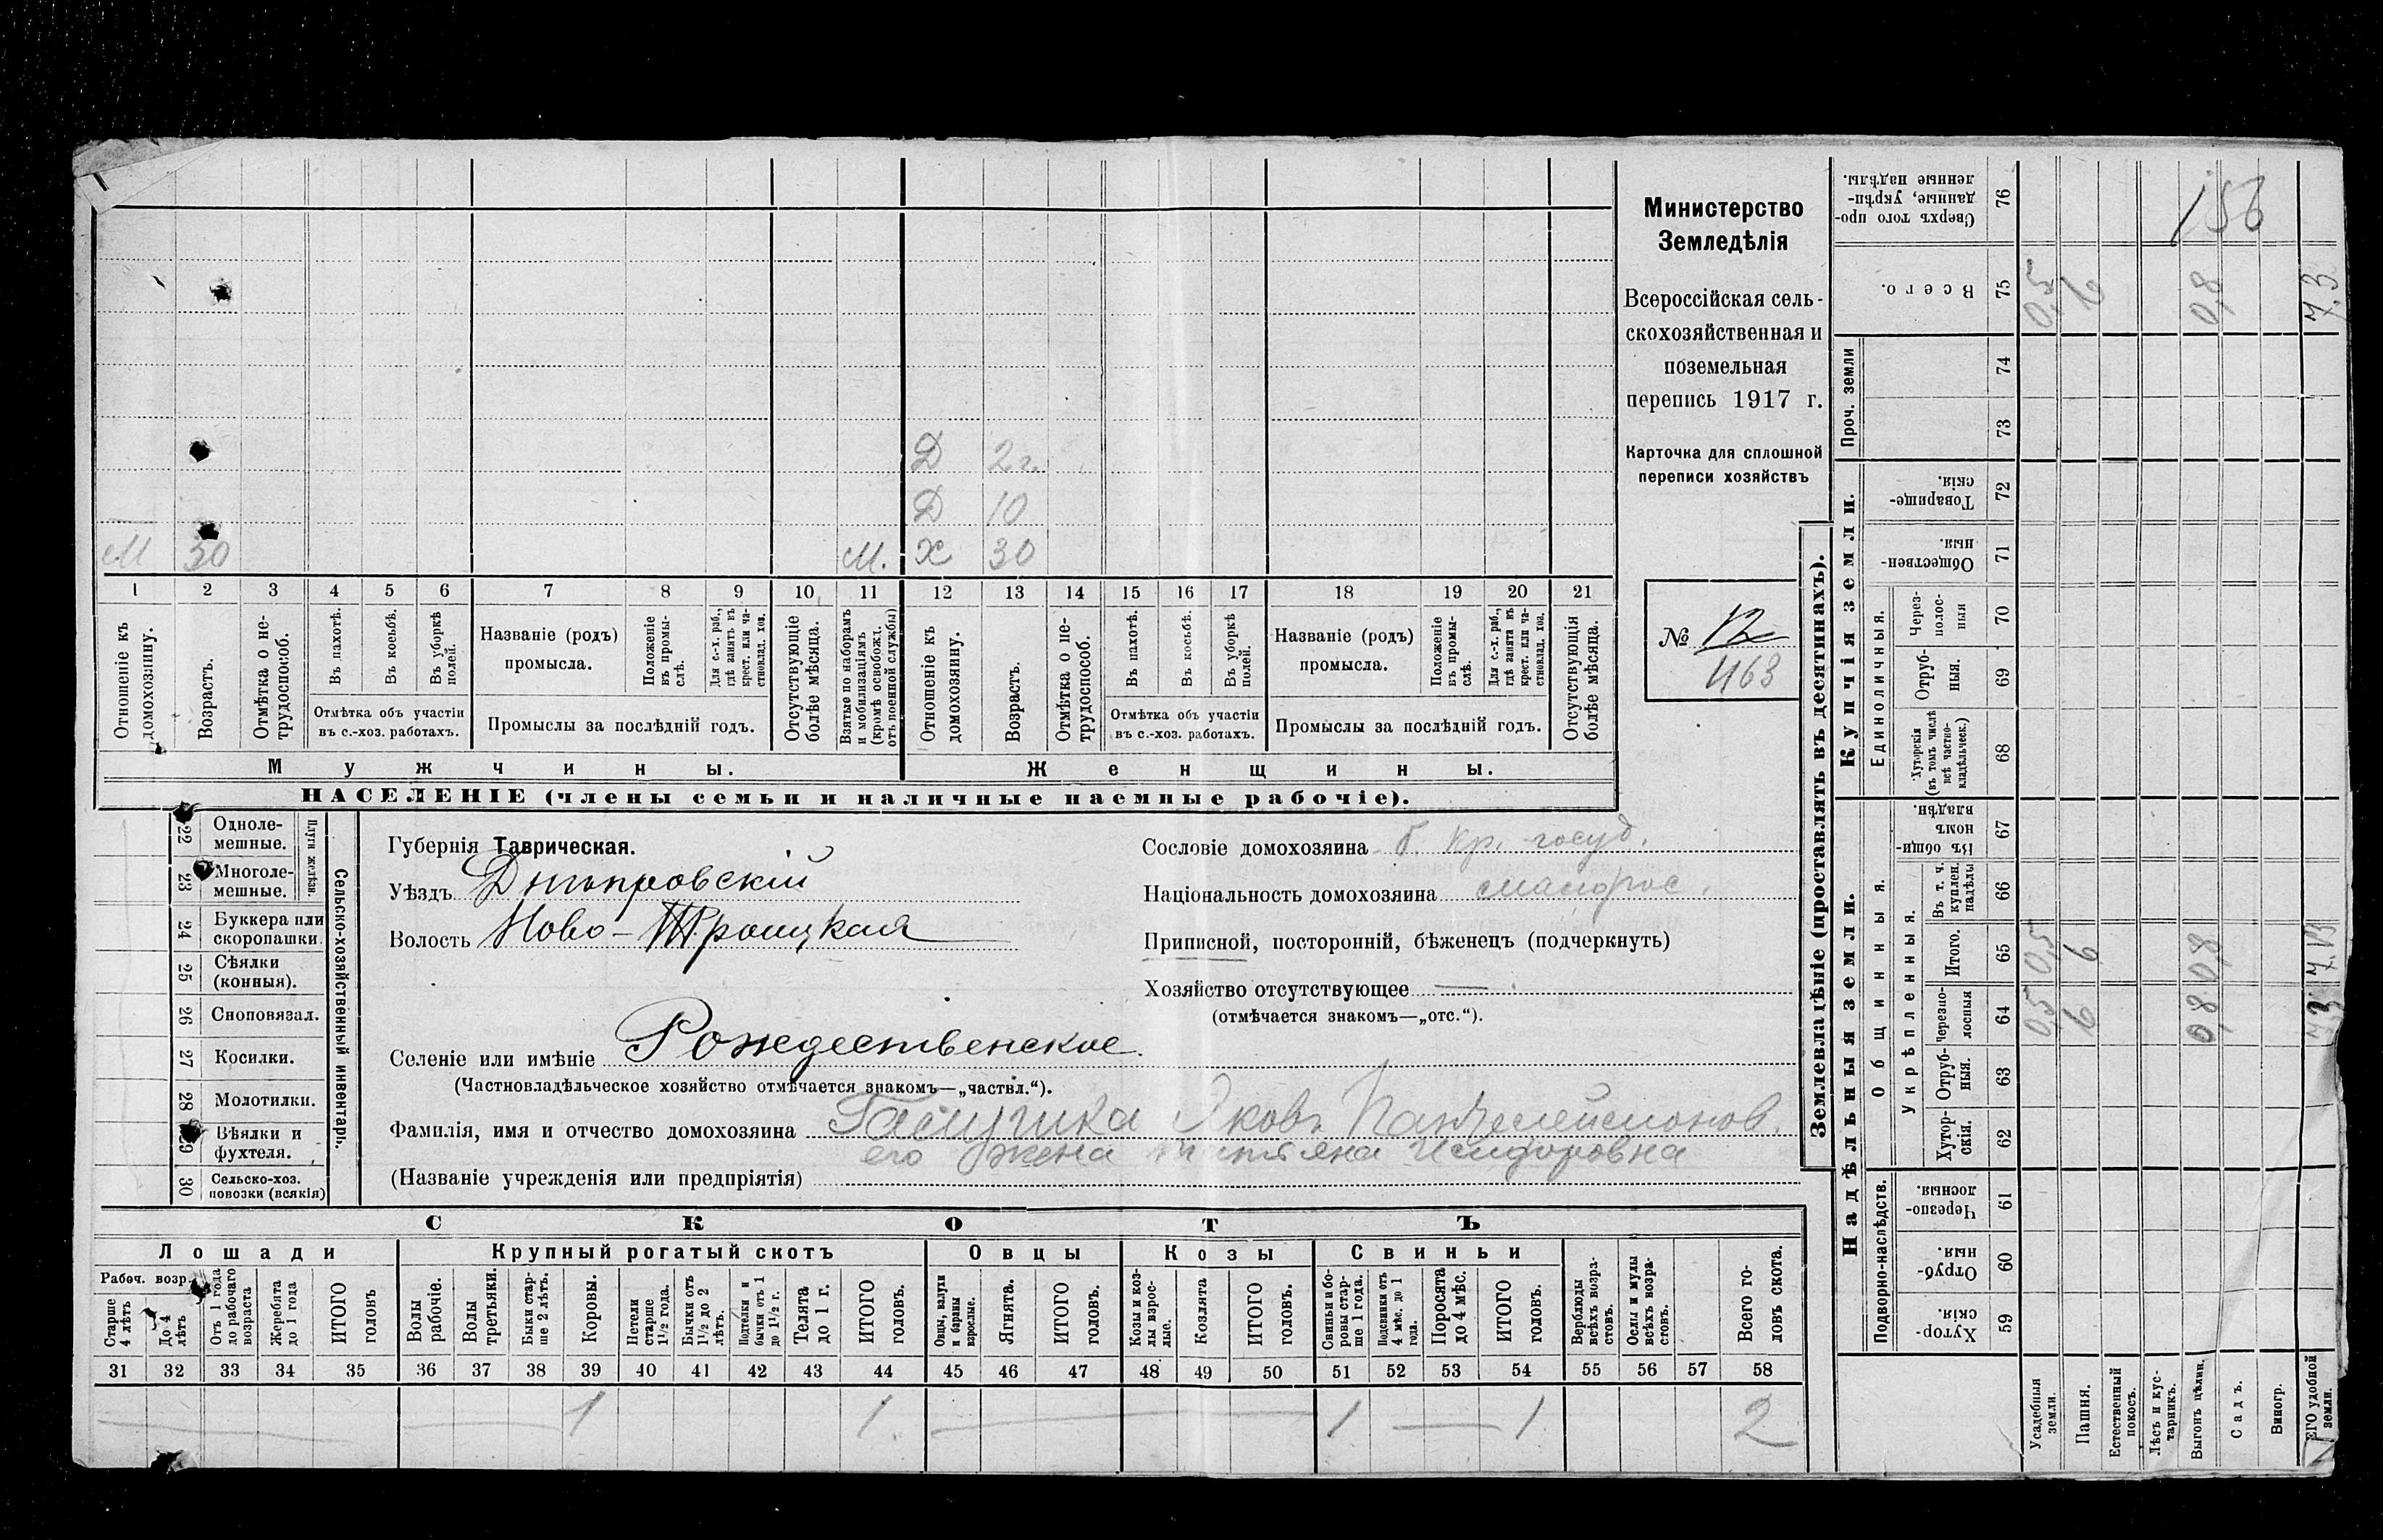 Д 2 г.
Д 10
М 30 М. Х 30
1 2 3 4 5 6 7 8 9 10 11 12 13 14 15 16 17 18 19 20 21
Отношеніе къ домохозяину.
Возрастъ.
Отмѣтка о не-
трудоспособ.
Въ пахотѣ.
Въ косьбѣ.
Въ уборкѣ
полей.
Отмѣтка объ участіи
въ с.-хоз. работахъ.
Названіе (родъ)
промысла.
Положеніе
въ промы-
слѣ.
Для с.-х. раб.,
гдѣ занятъ въ
крест. или ча-
стновлад. хоз.
Промыслы за послѣдній годъ.
Отсутствующіе
болѣе мѣсяца.
Взятые по наборамъ
и мобилизаціямъ
(кромѣ освобожд.
отъ военной службы)
Отношеніе къ
домохозяину.
Возрастъ.
Отмѣтка о не-
трудоспособ.
Въ пахотѣ.
Въ косьбѣ.
Въ уборкѣ
полей.
Отмѣтка объ участіи
въ с.-хоз. работахъ.
Названіе (родъ)
промысла.
Положеніе
въ промы-
слѣ.
Для с.-х. раб.,
гдѣ занята въ
крест. или ча-
стновлад. хоз.
Промыслы за послѣдній годъ.
Отсутствующія
болѣе мѣсяца.
Мужчины.
Женщины.
НАСЕЛЕНІЕ (члены семьи и наличные наемные рабочіе).
Министерство
Земледѣлія
Всероссійская сель-
скохозяйственная и
поземельная
перепись 1917 г.
Карточка для сплошной
переписи хозяйствъ
№ 12
463
22 Одноле-
мешные.
23 Многоле-
мешные.
Плуги желѣзн.
24 Буккера или
скоропашки.
25 Сѣялки
(конныя).
26 Сноповязал.
27 Косилки.
28 Молотилки.
29 Вѣялки и
фухтеля.
30 Сельско-хоз.
повозки (всякія)
Сельско-хозяйственный инвентарь.
Губернія Таврическая.
Уѣздъ Днѣпровскій
Волость Ново-Троицкая
Селеніе или имѣніе Рождественское.
(Частновладѣльческое хозяйство отмѣчается знакомъ—„частвл.“).
Сословіе домохозяина б. кр. госуд.
Національность домохозяина малорос.
Приписной, посторонній, бѣженецъ (подчеркнуть)
Хозяйство отсутствующее —
(отмѣчается знакомъ—„отс.“).
Фамилія, имя и отчество домохозяина Яковъ Пантелеймонов.
его жена Исидоровна
(Названіе учрежденія или предпріятія)
СКОТЪ
Лошади Крупный рогатый скотъ Овцы Козы Свиньи
Рабоч. возр.
Старше
4 лѣтъ
До 4
лѣтъ
Отъ 1 года
до рабочаго
возраста
Жеребята
до 1 года
ИТОГО
головъ
Волы
рабочіе.
Волы
третьяки.
Быки стар-
ше 2 лѣтъ.
Коровы.
Нетели
старше
1½ года.
Бычки отъ
1½ до 2
лѣтъ.
Подтелки и
бычки отъ 1
до 1½ г.
Телята
до 1 г.
ИТОГО
головъ.
Овцы, валухи
и бараны
взрослые.
Ягнята.
ИТОГО
головъ.
Козы и коз-
лы взрос-
лые.
Козлята
ИТОГО
головъ.
Свиньи и бо-
ровы стар-
ше 1 года.
Подсвинки отъ
4 мѣс. до 1
года.
Поросята
до 4 мѣс.
ИТОГО
головъ.
Верблюды
всѣхъ возра-
стовъ.
Ослы и мулы
всѣхъ возра-
стовъ.
Всего го-
ловъ скота.
31 32 33 34 35 36 37 38 39 40 41 42 43 44 45 46 47 48 49 50 51 52 53 54 55 56 57 58
1 1 1 1 2
Землевладѣніе (проставлять въ десятинахъ).
Надѣльныя земли.
Купчія земли.
Проч. земли
Подворно-наслѣдств.
Общинныя.
Укрѣпленныя.
Единоличныя.
Сверхъ того про-
данные, укрѣп-
ленные надѣлы.
76
156
Всего.
75
0,5 6 0,8 7,3
74
73
Товарище-
скія.
72
Обществен-
ныя.
71
Через-
полос-
ныя
70
Отруб-
ныя.
69
Хуторскія
(въ томъ числѣ
всѣ частно-
владѣльческ.)
68
Въ общин-
номъ
владѣн.
67
Въ т. ч.
куплен.
надѣлы
66
Итого.
65
0,5 6 0,8 7,3
Черезпо-
лосныя
64
0,5 6 0,8 7,3
Отруб-
ныя.
63
Хутор-
скія.
62
Черезпо-
лосныя.
61
Отруб-
ныя.
60
Хутор-
скія.
59
Усадебныя
земли.
Пашня.
Естественный
покосъ.
Лѣсъ и кус-
тарникъ.
Выгонъ цѣлин.
Садъ.
Виногр.
ЕГО удобной
земли.